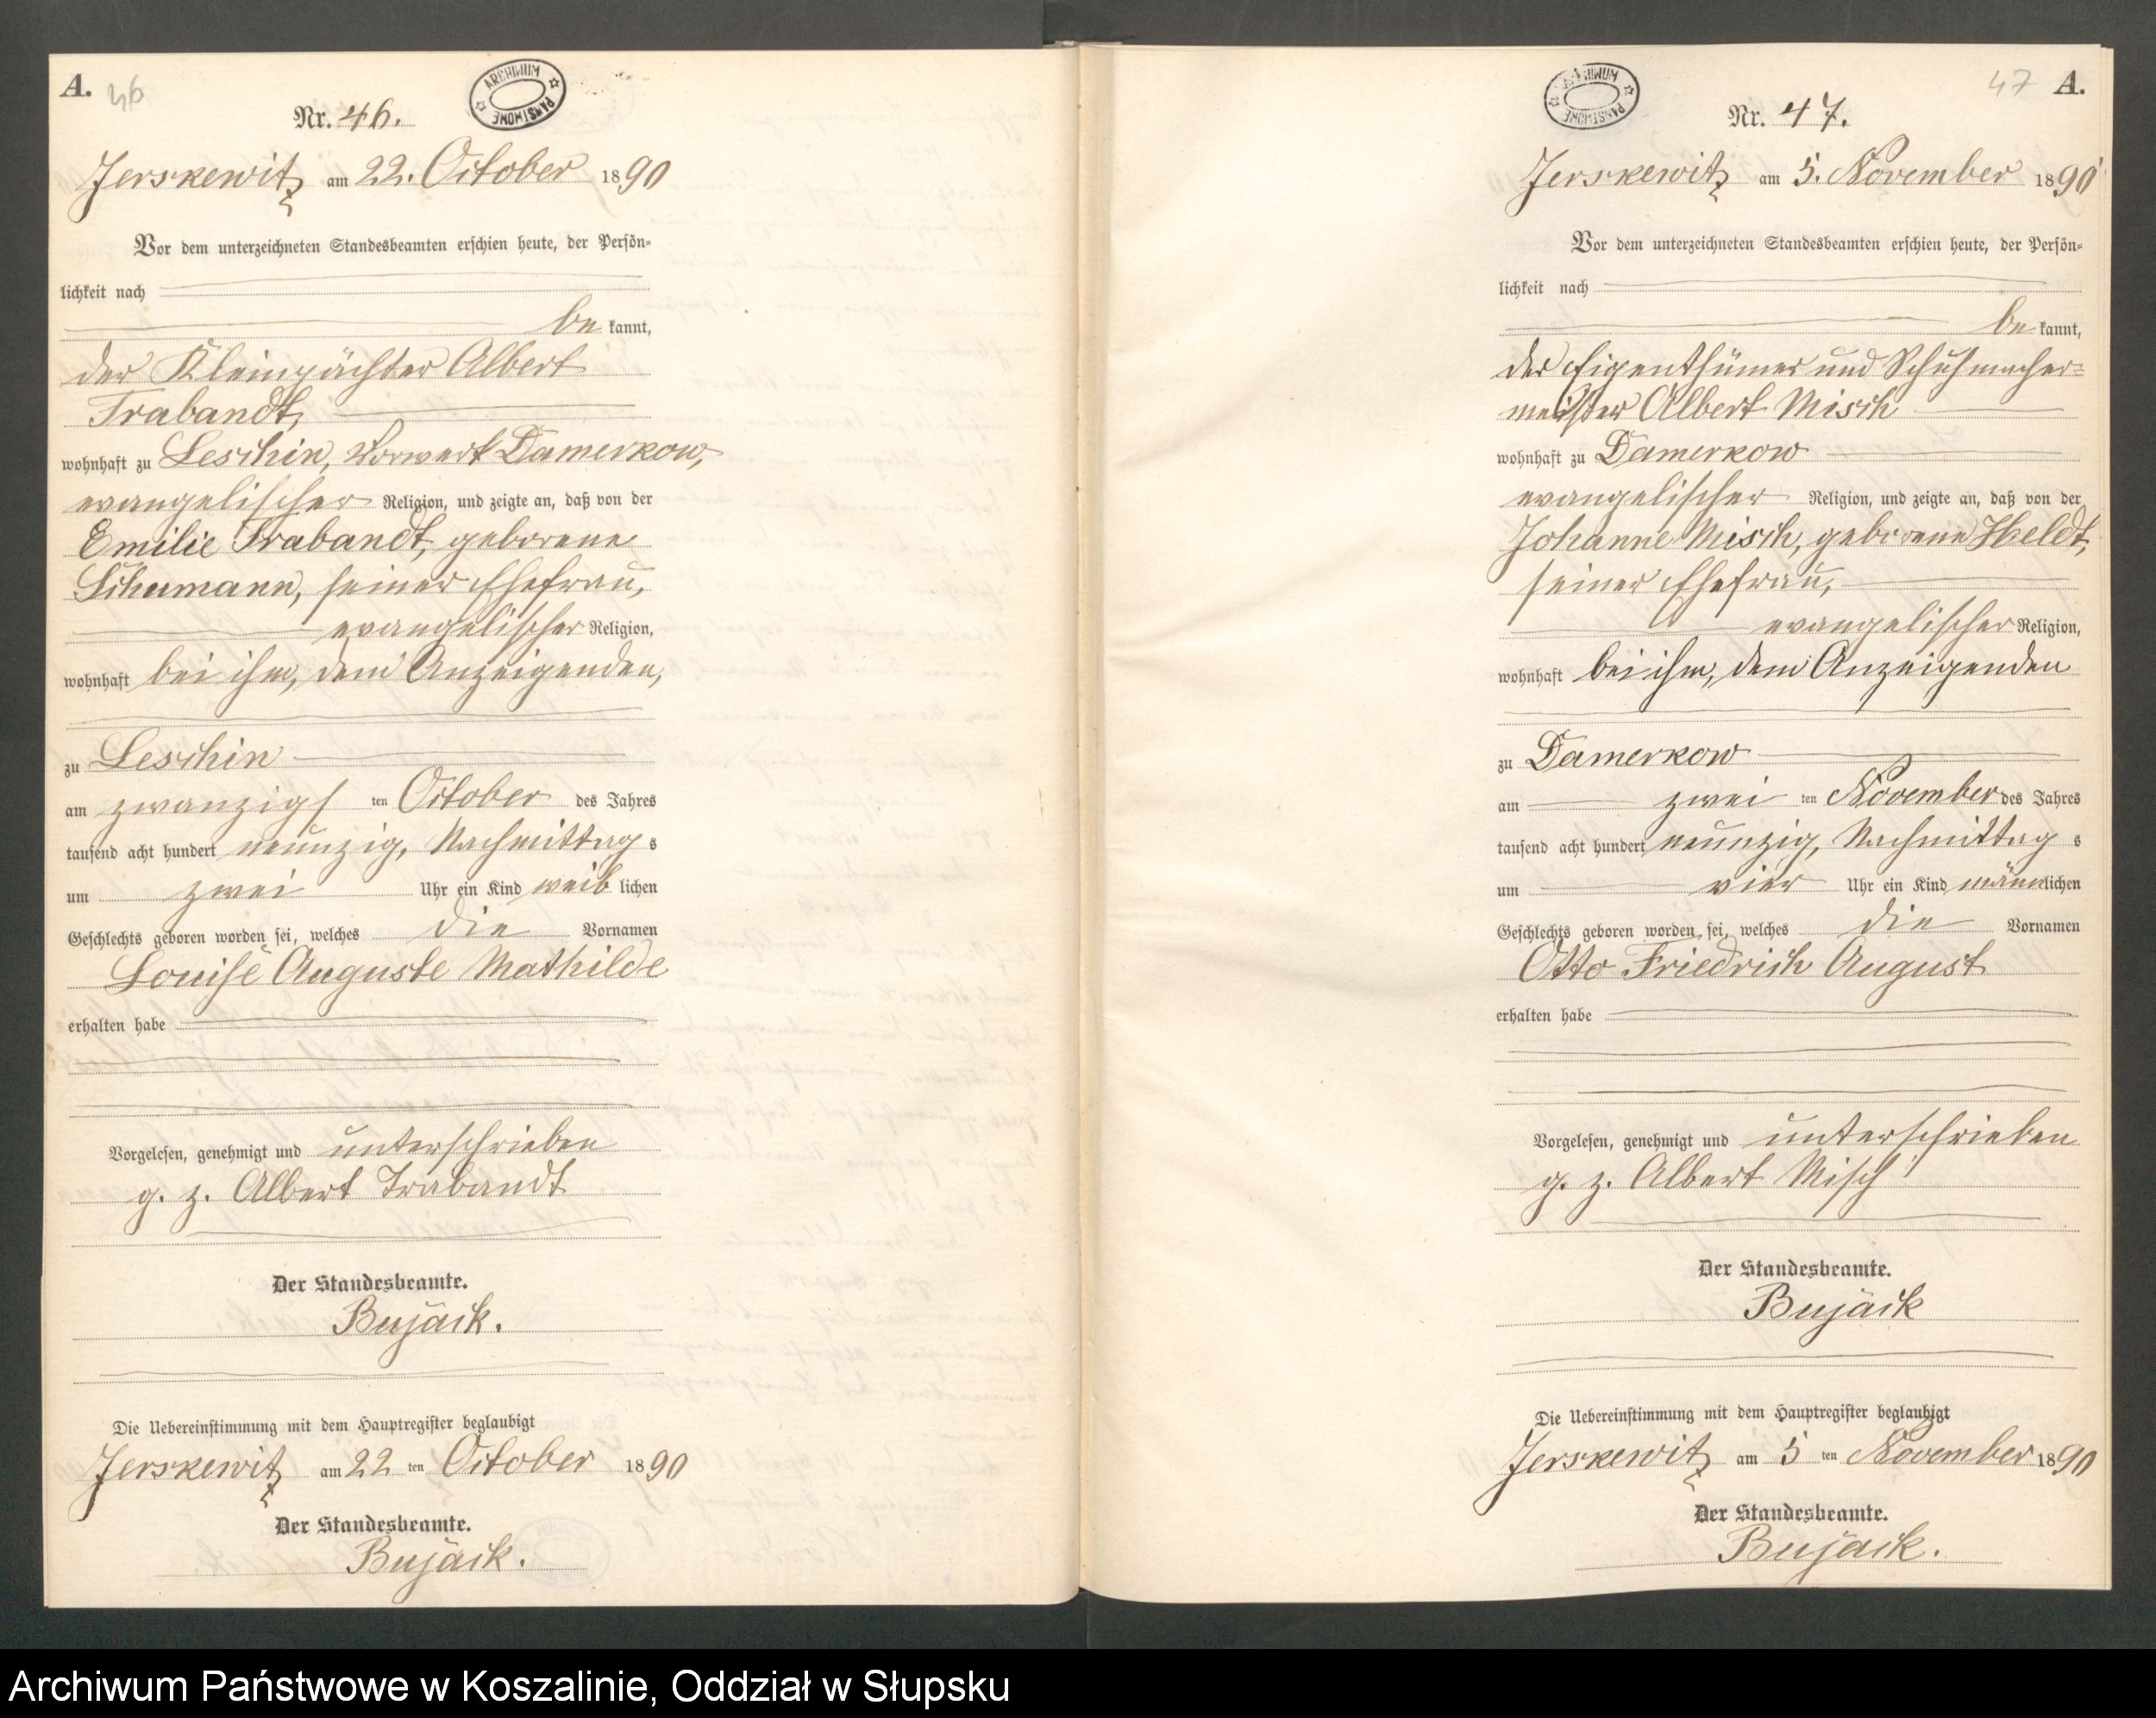 A. 46
ARCHIWUM PAŃSTWOWE
Nr. 46.
Jerskewitz am 22. October 1890
Vor dem unterzeichneten Standesbeamten erschien heute, der Persön-
lichkeit nach
be kannt,
der Kleinpächter Albert
Trabandt,
wohnhaft zu Leschin, Vorwerk Damerkow,
evangelischer Religion, und zeigte an, daß von der
Emilie Trabandt, geborene
Schumann, seiner Ehefrau,
evangelischer Religion,
wohnhaft bei ihm, dem Anzeigenden,
zu Leschin
am zwanzigs ten October des Jahres
tausend acht hundert neunzig, Nachmittag s
um zwei Uhr ein Kind weib lichen
Geschlechts geboren worden sei, welches die Vornamen
Louise Auguste Mathilde
erhalten habe
Vorgelesen, genehmigt und unterschrieben
g. z. Albert Trabandt
Der Standesbeamte.
Bujack.
Die Uebereinstimmung mit dem Hauptregister beglaubigt
Jerskewitz am 22 ten October 1890
Der Standesbeamte.
Bujack.
47 A.
ARCHIWUM PAŃSTWOWE
Nr. 47.
Jerskewitz am 5. November 1890
Vor dem unterzeichneten Standesbeamten erschien heute, der Persön-
lichkeit nach
be kannt,
der Eigenthümer und Schuhmacher-
meister Albert Misch
wohnhaft zu Damerkow
evangelischer Religion, und zeigte an, daß von der
Johanne Misch, geborene Heldt,
seiner Ehefrau,
evangelischer Religion,
wohnhaft bei ihm, dem Anzeigenden
zu Damerkow
am zwei ten November des Jahres
tausend acht hundert neunzig, Nachmittag s
um vier Uhr ein Kind männlichen
Geschlechts geboren worden sei, welches die Vornamen
Otto Friedrich August
erhalten habe
Vorgelesen, genehmigt und unterschrieben
g. z. Albert Misch
Der Standesbeamte.
Bujack
Die Uebereinstimmung mit dem Hauptregister beglaubigt
Jerskewitz am 5 ten November 1890
Der Standesbeamte.
Bujack.
Archiwum Państwowe w Koszalinie, Oddział w Słupsku